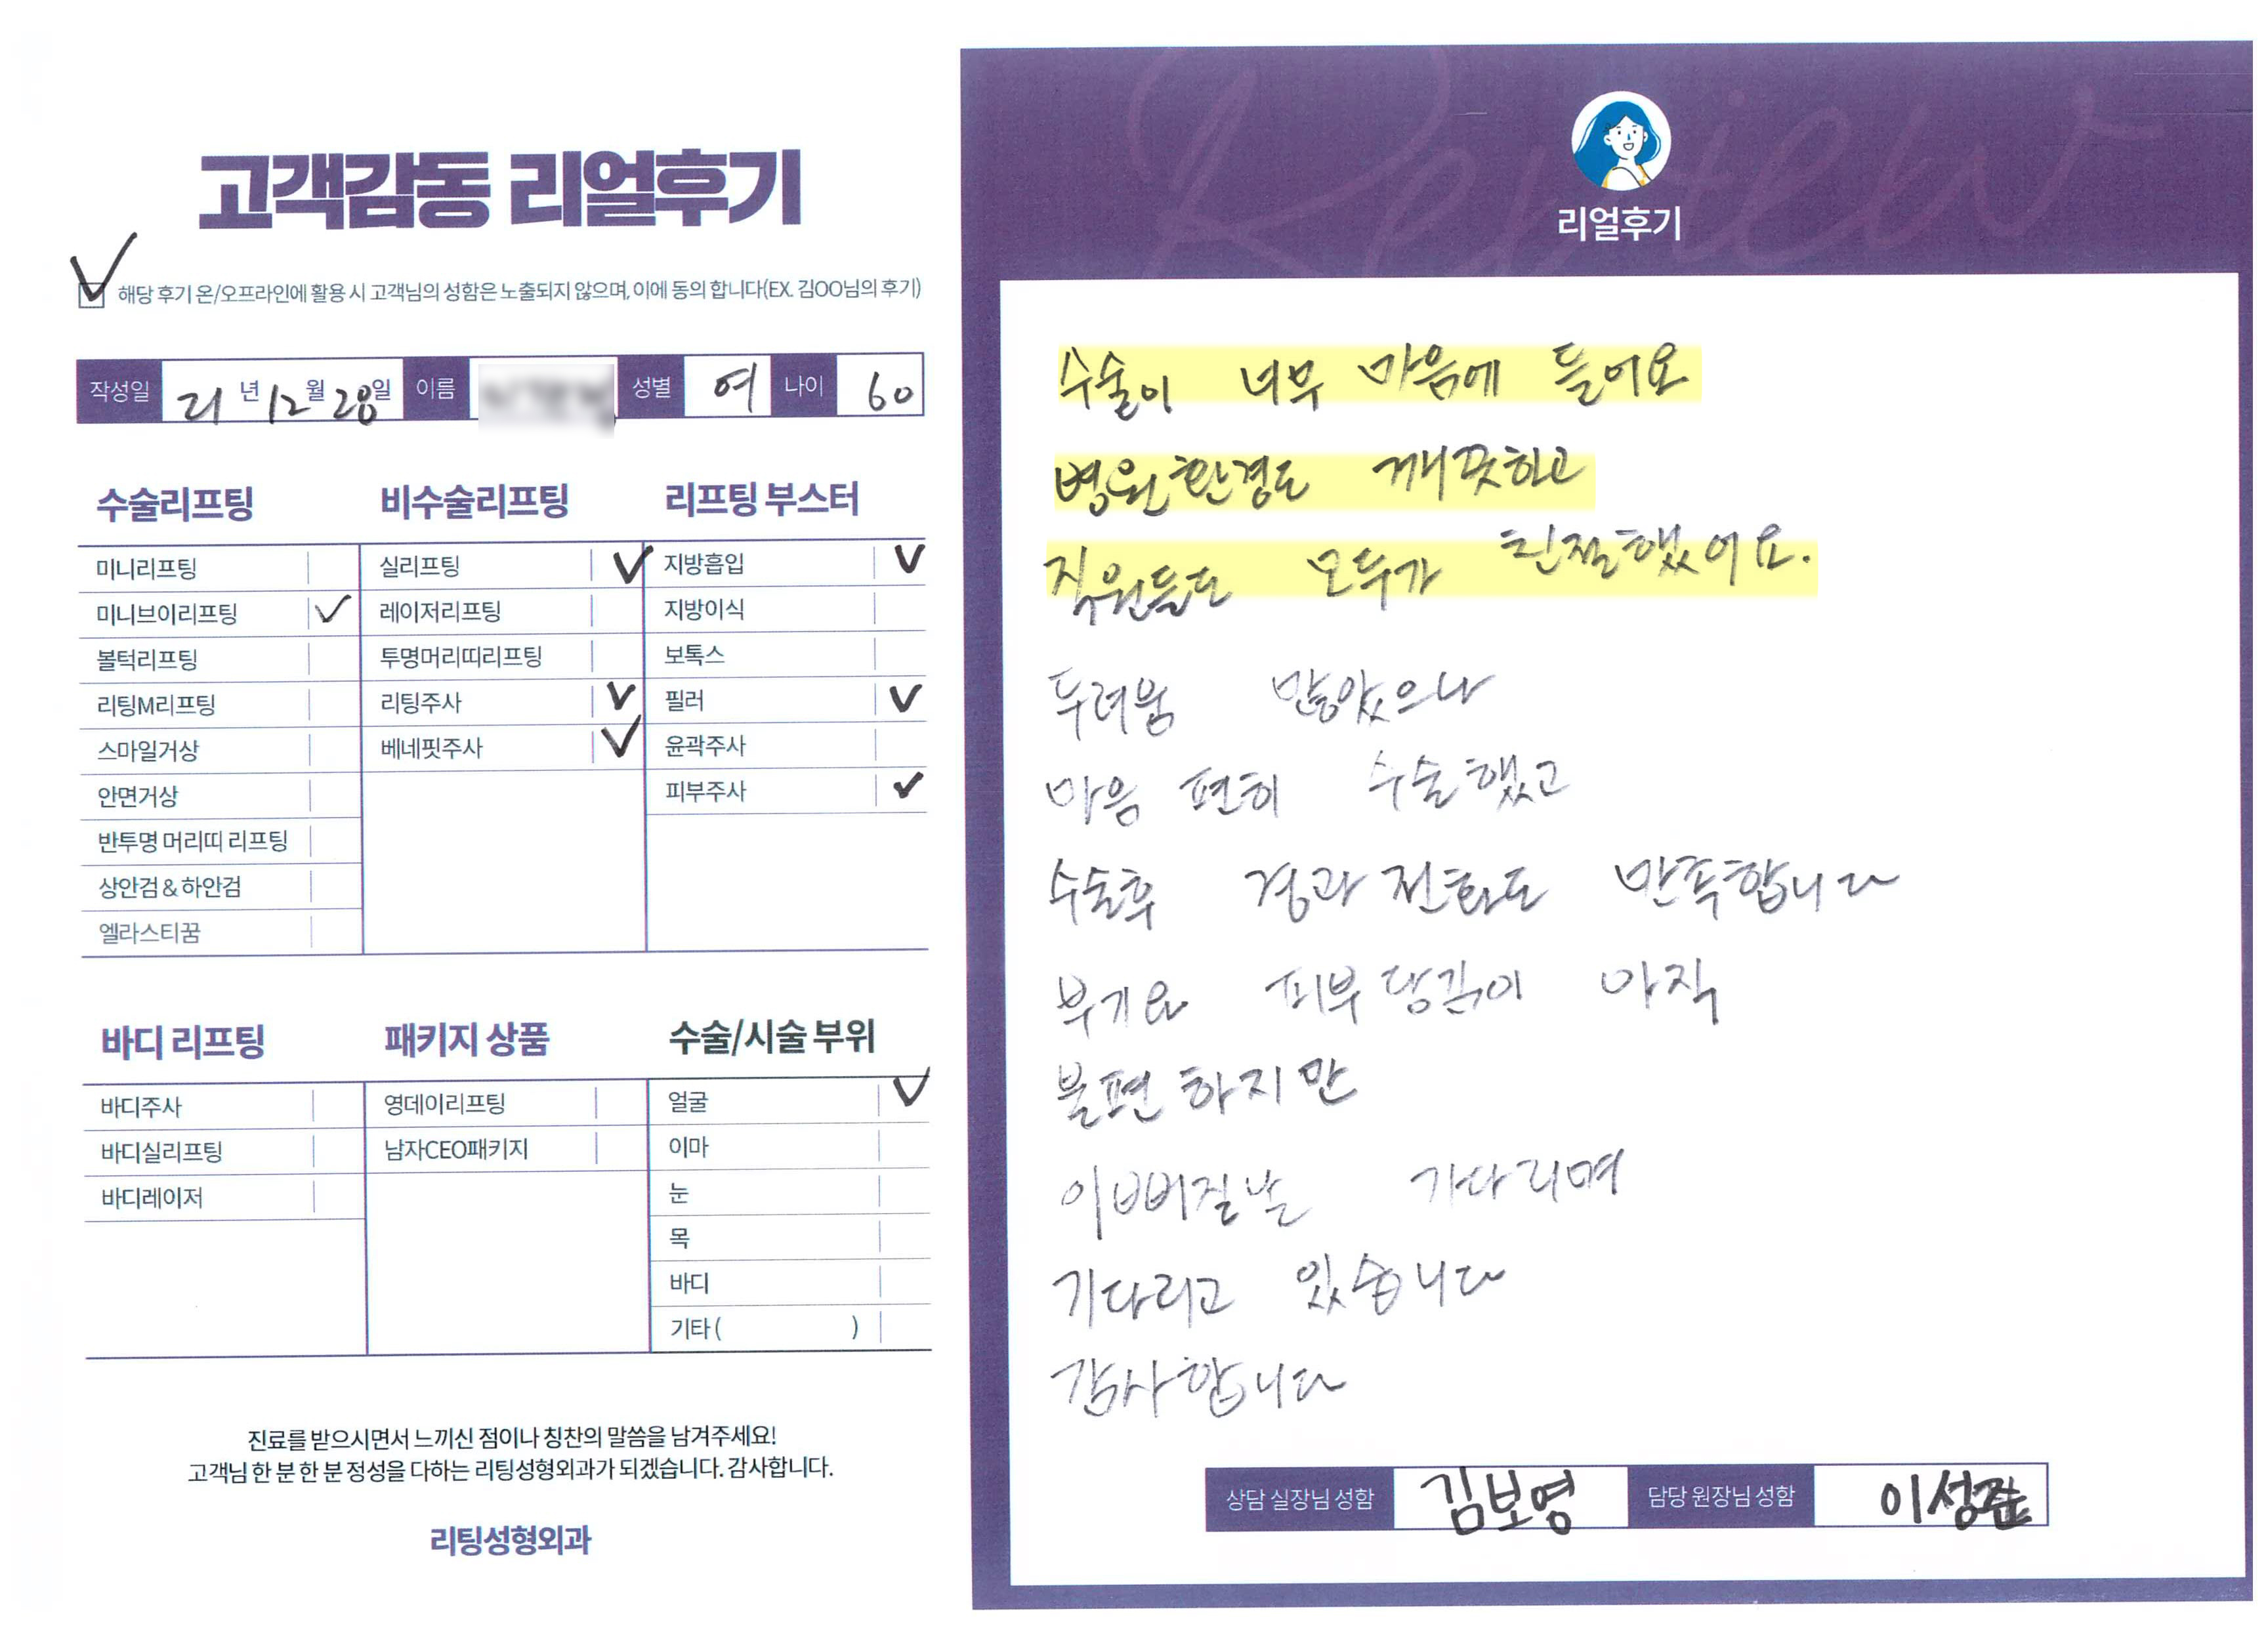 고객감동 리얼후기
해당 후기 온/오프라인에 활용 시 고객님의 성함은 노출되지 않으며, 이에 동의 합니다(EX. 김OO님의 후기)
작성일 21년 12월 28일 이름 성별 여 나이 60
수술리프팅
미니리프팅
미니브이리프팅
볼턱리프팅
리팅M리프팅
스마일거상
안면거상
반투명 머리띠 리프팅
상안검 & 하안검
엘라스티꿈
비수술리프팅
실리프팅
레이저리프팅
투명머리띠리프팅
리팅주사
베네핏주사
리프팅 부스터
지방흡입
지방이식
보톡스
필러
윤곽주사
피부주사
바디 리프팅
바디주사
바디실리프팅
바디레이저
패키지 상품
영데이리프팅
남자CEO패키지
수술/시술 부위
얼굴
이마
눈
목
바디
기타 ( )
진료를 받으시면서 느끼신 점이나 칭찬의 말씀을 남겨주세요!
고객님 한 분 한 분 정성을 다하는 리팅성형외과가 되겠습니다. 감사합니다.
리팅성형외과
Review
리얼후기
수술이 너무 마음에 들어요
병원환경도 깨끗하고
직원들도 모두가 친절했어요.
두려움 많았으나
마음 편히 수술했고
수술후 경과 전화도 만족합니다
부기와 피부 당김이 아직
불편 하지만
이뻐질날 기다리며
기다리고 있습니다
감사합니다
상담 실장님 성함 김보영 담당 원장님 성함 이성준